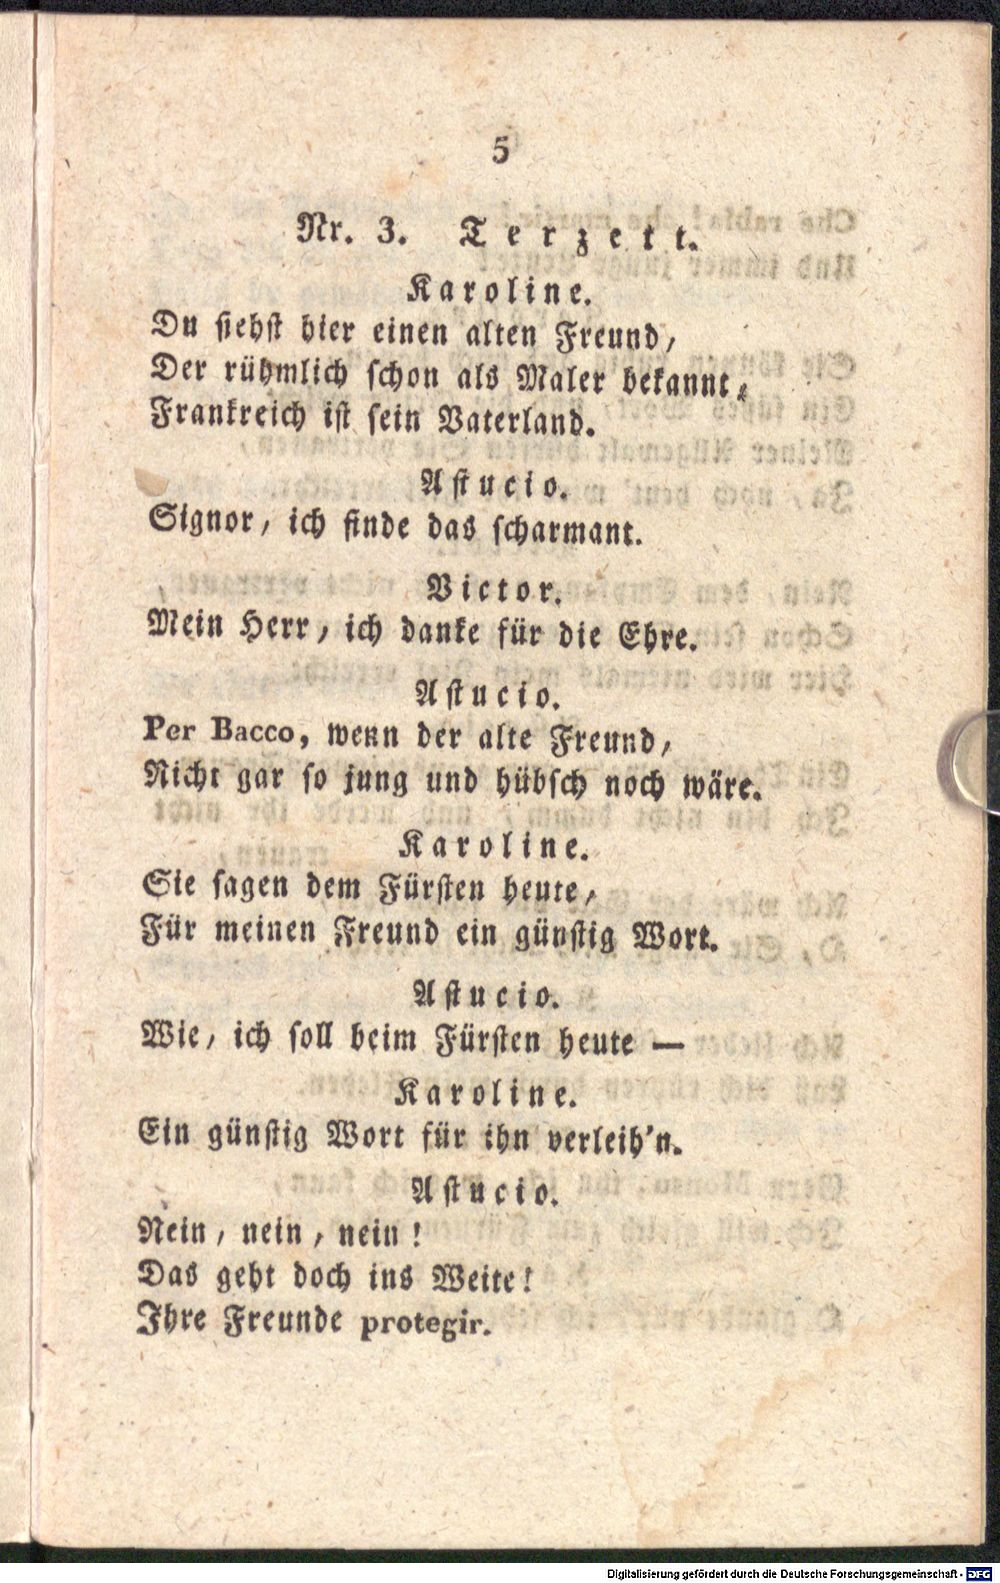 5
Nr. 3. Terzett.
Karoline.
Du siehst hier einen alten Freund,
Der rühmlich schon als Maler bekannt,
Frankreich ist sein Vaterland.
Astucio.
Signor, ich finde das scharmant.
Victor.
Mein Herr, ich danke für die Ehre.
Astucio.
Per Bacco, wenn der alte Freund,
Nicht gar so jung und hübsch noch wäre.
Karoline.
Sie sagen dem Fürsten heute,
Für meinen Freund ein günstig Wort.
Astucio.
Wie, ich soll beim Fürsten heute —
Karoline.
Ein günstig Wort für ihn verleih'n.
Astucio.
Nein, nein, nein!
Das geht doch ins Weite!
Ihre Freunde protegir.
Digitalisierung gefördert durch die Deutsche Forschungsgemeinschaft - DFG